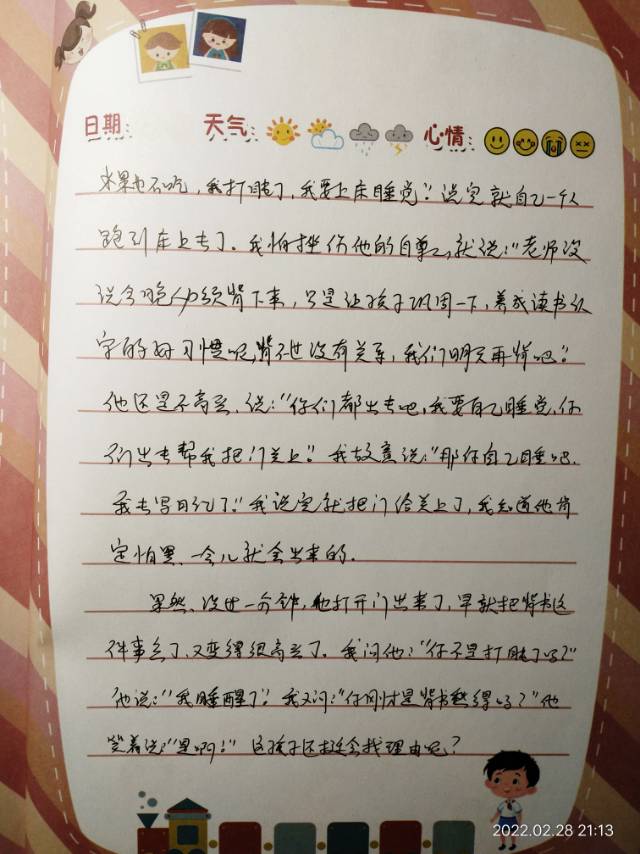 日期:
天气:
心情:
水果也不吃，我打瞌了，我要上床睡觉"。说完就自己一个人
跑到床上去了。我怕挫伤他的自尊心,就说："老师没
说今晚必须背下来，只是让孩子巩固一下，养成读书认
字的好习惯呢,背不过没有关系，我们明天再背吧"。
他还是不高兴，说："你们都出去吧，我要自己睡觉，你
们出去帮我把门关上"。我故意说："那你自己睡吧，
我去写日记了"。我说完就把门给关上了，我知道他肯
定怕黑、一会儿就会出来的.
果然、没过一分钟，他打开门出来了，早就把背书这
件事忘了，又变得很高兴了。我问他："你不是打瞌了吗？"
他说："我睡醒了"。我又问："你刚才是背书愁得吗？"他
笑着说："是啊！" 这孩子还挺会找理由呢？
2022.02.28 21:13